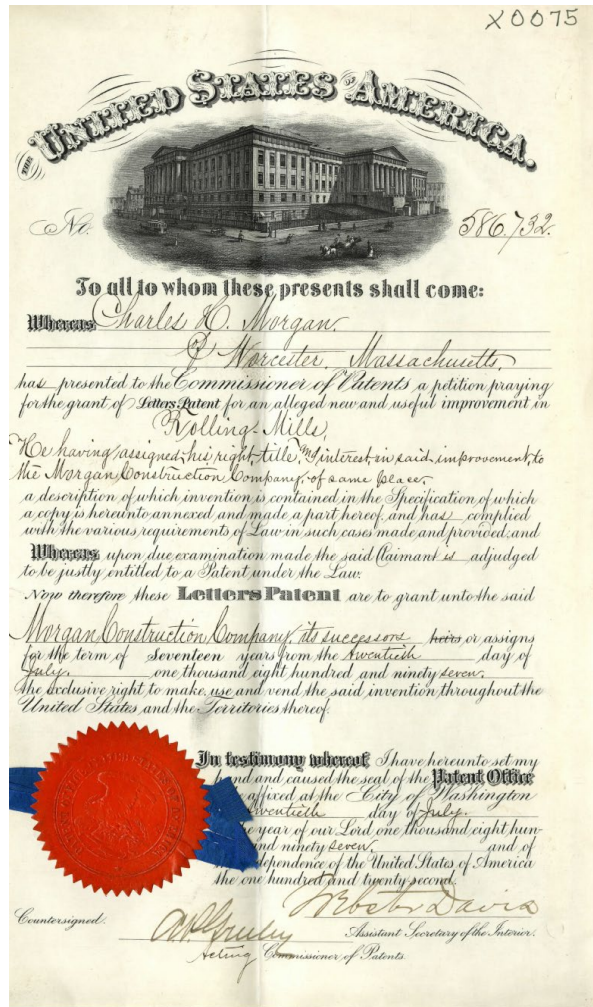 X0075
THE UNITED STATES OF AMERICA.
No. 586,732.
To all to whom these presents shall come:
Whereas Charles H. Morgan,
of Worcester, Massachusetts,
has presented to the Commissioner of Patents a petition praying
for the grant of Letters Patent for an alleged new and useful improvement in
Rolling-Mills,
He having assigned his right, title, and interest in said improvement, to
the Morgan Construction Company, of same place,
a description of which invention is contained in the Specification of which
a copy is hereunto annexed and made a part hereof, and has complied
with the various requirements of Law in such cases made and provided, and
Whereas upon due examination made the said Claimant is adjudged
to be justly entitled to a Patent under the Law.
Now therefore these Letters Patent are to grant unto the said
Morgan Construction Company, its successors heirs or assigns
for the term of Seventeen years from the twentieth day of
July, one thousand eight hundred and ninety seven,
the exclusive right to make, use and vend the said invention throughout the
United States and the Territories thereof.
In testimony whereof I have hereunto set my
hand and caused the seal of the Patent Office
affixed at the City of Washington
twentieth day of July,
the year of our Lord one thousand eight hun-
and ninety seven, and of
dependence of the United States of America
the one hundred and twenty second.
Webster Davis
Countersigned.
Assistant Secretary of the Interior.
A.P. Greeley
Acting Commissioner of Patents.